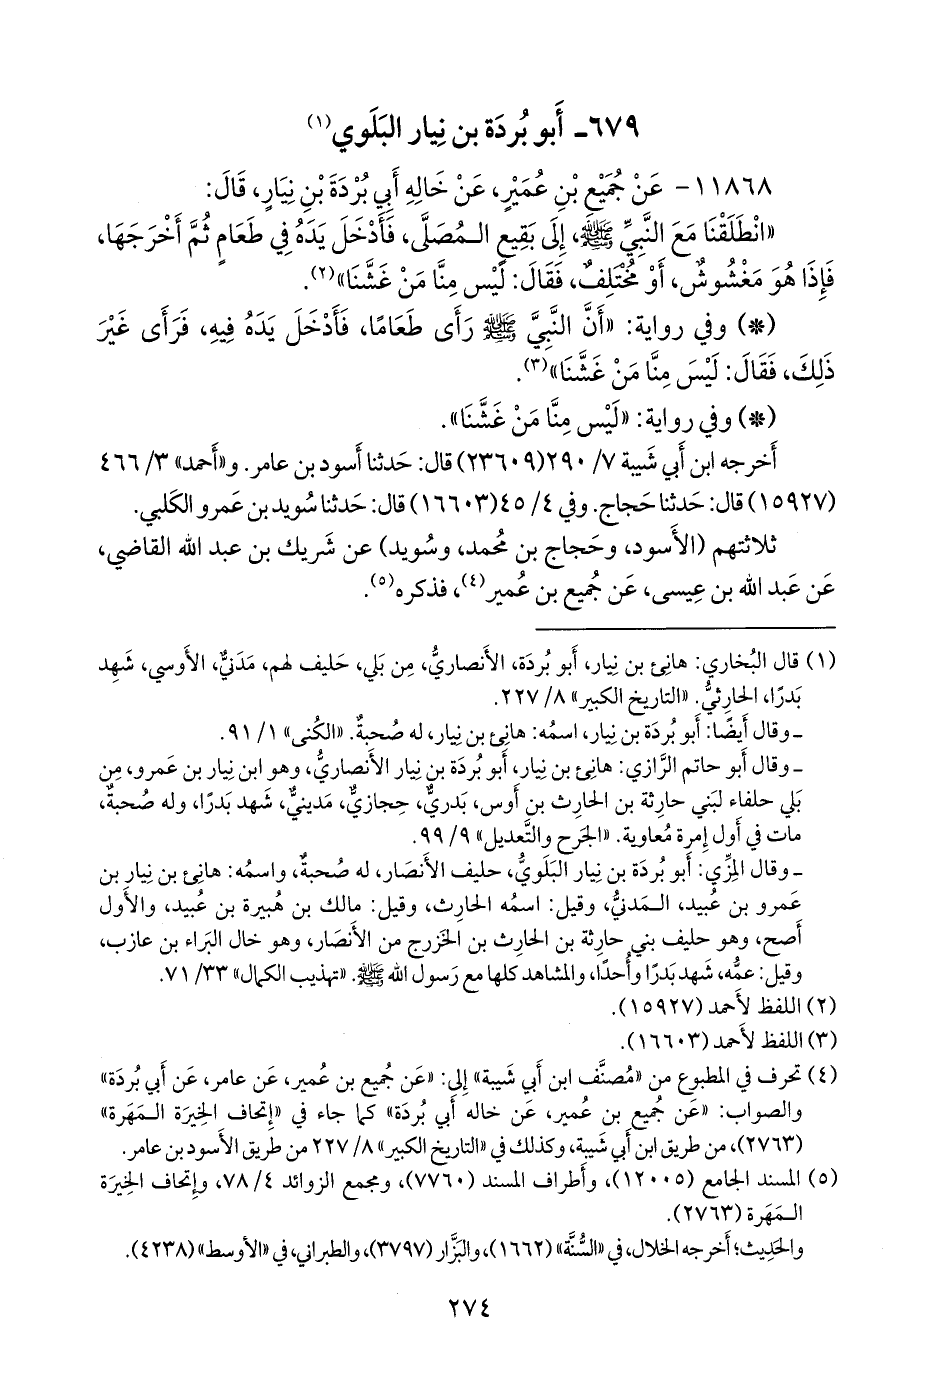 ٦٧٩ـ أَبو بُردَة بن نِيار البَلَوي(١)
١١٨٦٨ - عَنْ جُمَيْعِ بْنِ عُمَيْرٍ، عَنْ خَالِهِ أَبِي بُرْدَةَ بْنِ نِيَارٍ، قَالَ:
«انْطَلَقْنَا مَعَ النَّبِيِّ ﷺ، إِلَى بَقِيعِ الـمُصَلَّى، فَأَدْخَلَ يَدَهُ فِي طَعَامٍ ثُمَّ أَخْرَجَهَا،
فَإِذَا هُوَ مَغْشُوشٌ، أَوْ مُخْتَلِفٌ، فَقَالَ: لَيْسَ مِنَّا مَنْ غَشَّنَا»(٢).
(*) وفي رواية: «أَنَّ النَّبِيَّ ﷺ رَأَى طَعَامًا، فَأَدْخَلَ يَدَهُ فِيهِ، فَرَأَى غَيْرَ
ذَلِكَ، فَقَالَ: لَيْسَ مِنَّا مَنْ غَشَّنَا»(٣).
(*) وفي رواية: «لَيْسَ مِنَّا مَنْ غَشَّنَا».
أَخرجه ابن أَبي شَيبة ٧/ ٢٩٠(٢٣٦٠٩) قال: حَدثنا أَسود بن عامر. و«أَحمد» ٣/ ٤٦٦
(١٥٩٢٧) قال: حَدثنا حَجاج. وفي ٤/ ٤٥(١٦٦٠٣) قال: حَدثنا سُويد بن عَمرو الكَلبي.
ثلاثتهم (الأَسود، وحَجاج بن مُحمد، وسُويد) عن شَريك بن عبد الله القاضي،
عَن عَبد الله بن عِيسى، عَن جُميع بن عُمير(٤)، فذكره(٥).
(١) قال البُخاري: هانِئ بن نِيار، أَبو بُردَة، الأَنصاريُّ، مِن بَلي، حَليف لهم، مَدَنيٌّ، الأَوسي، شَهِد
بَدرًا، الحارِثيُّ. «التاريخ الكبير» ٨/ ٢٢٧.
ـ وقال أَيضًا: أَبو بُردَة بن نِيار، اسمُه: هانِئ بن نِيار، له صُحبةٌ. «الكُنى» ١/ ٩١.
ـ وقال أَبو حاتم الرَّازي: هانِئ بن نِيار، أَبو بُردَة بن نِيار الأَنصاريُّ، وهو ابن نِيار بن عَمرو، مِن
بَلي حلفاء لبَني حارِثة بن الحارِث بن أَوس، بَدريٌّ، حِجازيٌّ، مَدينيٌّ، شَهد بَدرًا، وله صُحبةٌ،
مات في أَول إِمرة مُعاوية. «الجَرح والتَّعديل» ٩/ ٩٩.
ـ وقال المِزِّي: أَبو بُردَة بن نِيار البَلَويُّ، حليف الأَنصَار، له صُحبةٌ، واسمُه: هانِئ بن نِيار بن
عَمرو بن عُبيد، الـمَدنيُّ، وقيل: اسمُه الحارِث، وقيل: مالك بن هُبيرة بن عُبيد، والأَول
أَصح، وهو حليف بني حارِثة بن الحارِث بن الخَزرج من الأَنصَار، وهو خال البَراء بن عازب،
وقيل: عمُّه، شَهد بَدرًا وأُحدًا، والمشاهد كلها مع رَسول الله ﷺ. «تهذيب الكمال» ٣٣/ ٧١.
(٢) اللفظ لأَحمد (١٥٩٢٧).
(٣) اللفظ لأَحمد (١٦٦٠٣).
(٤) تحرف في المطبوع من «مُصنَّف ابن أَبي شَيبة» إِلى: «عَن جُميع بن عُمير، عَن عامر، عَن أَبي بُردَة»
والصواب: «عَن جُميع بن عُمير، عَن خاله أَبي بُردَة» كما جاء في «إِتحاف الخِيرَة الـمَهَرة»
(٢٧٦٣)، من طريق ابن أَبي شَيبة، وكذلك في «التاريخ الكبير» ٨/ ٢٢٧ من طريق الأَسود بن عامر.
(٥) المسند الجامع (١٢٠٠٥)، وأَطراف المسند (٧٧٦٠)، ومجمع الزوائد ٤/ ٧٨، وإِتحاف الخِيرَة
الـمَهَرة (٢٧٦٣).
والحَدِيث؛ أَخرجه الخلال، في «السُّنَّة» (١٦٦٢)، والبَزَّار (٣٧٩٧)، والطبراني، في «الأَوسط» (٤٢٣٨).
٢٧٤